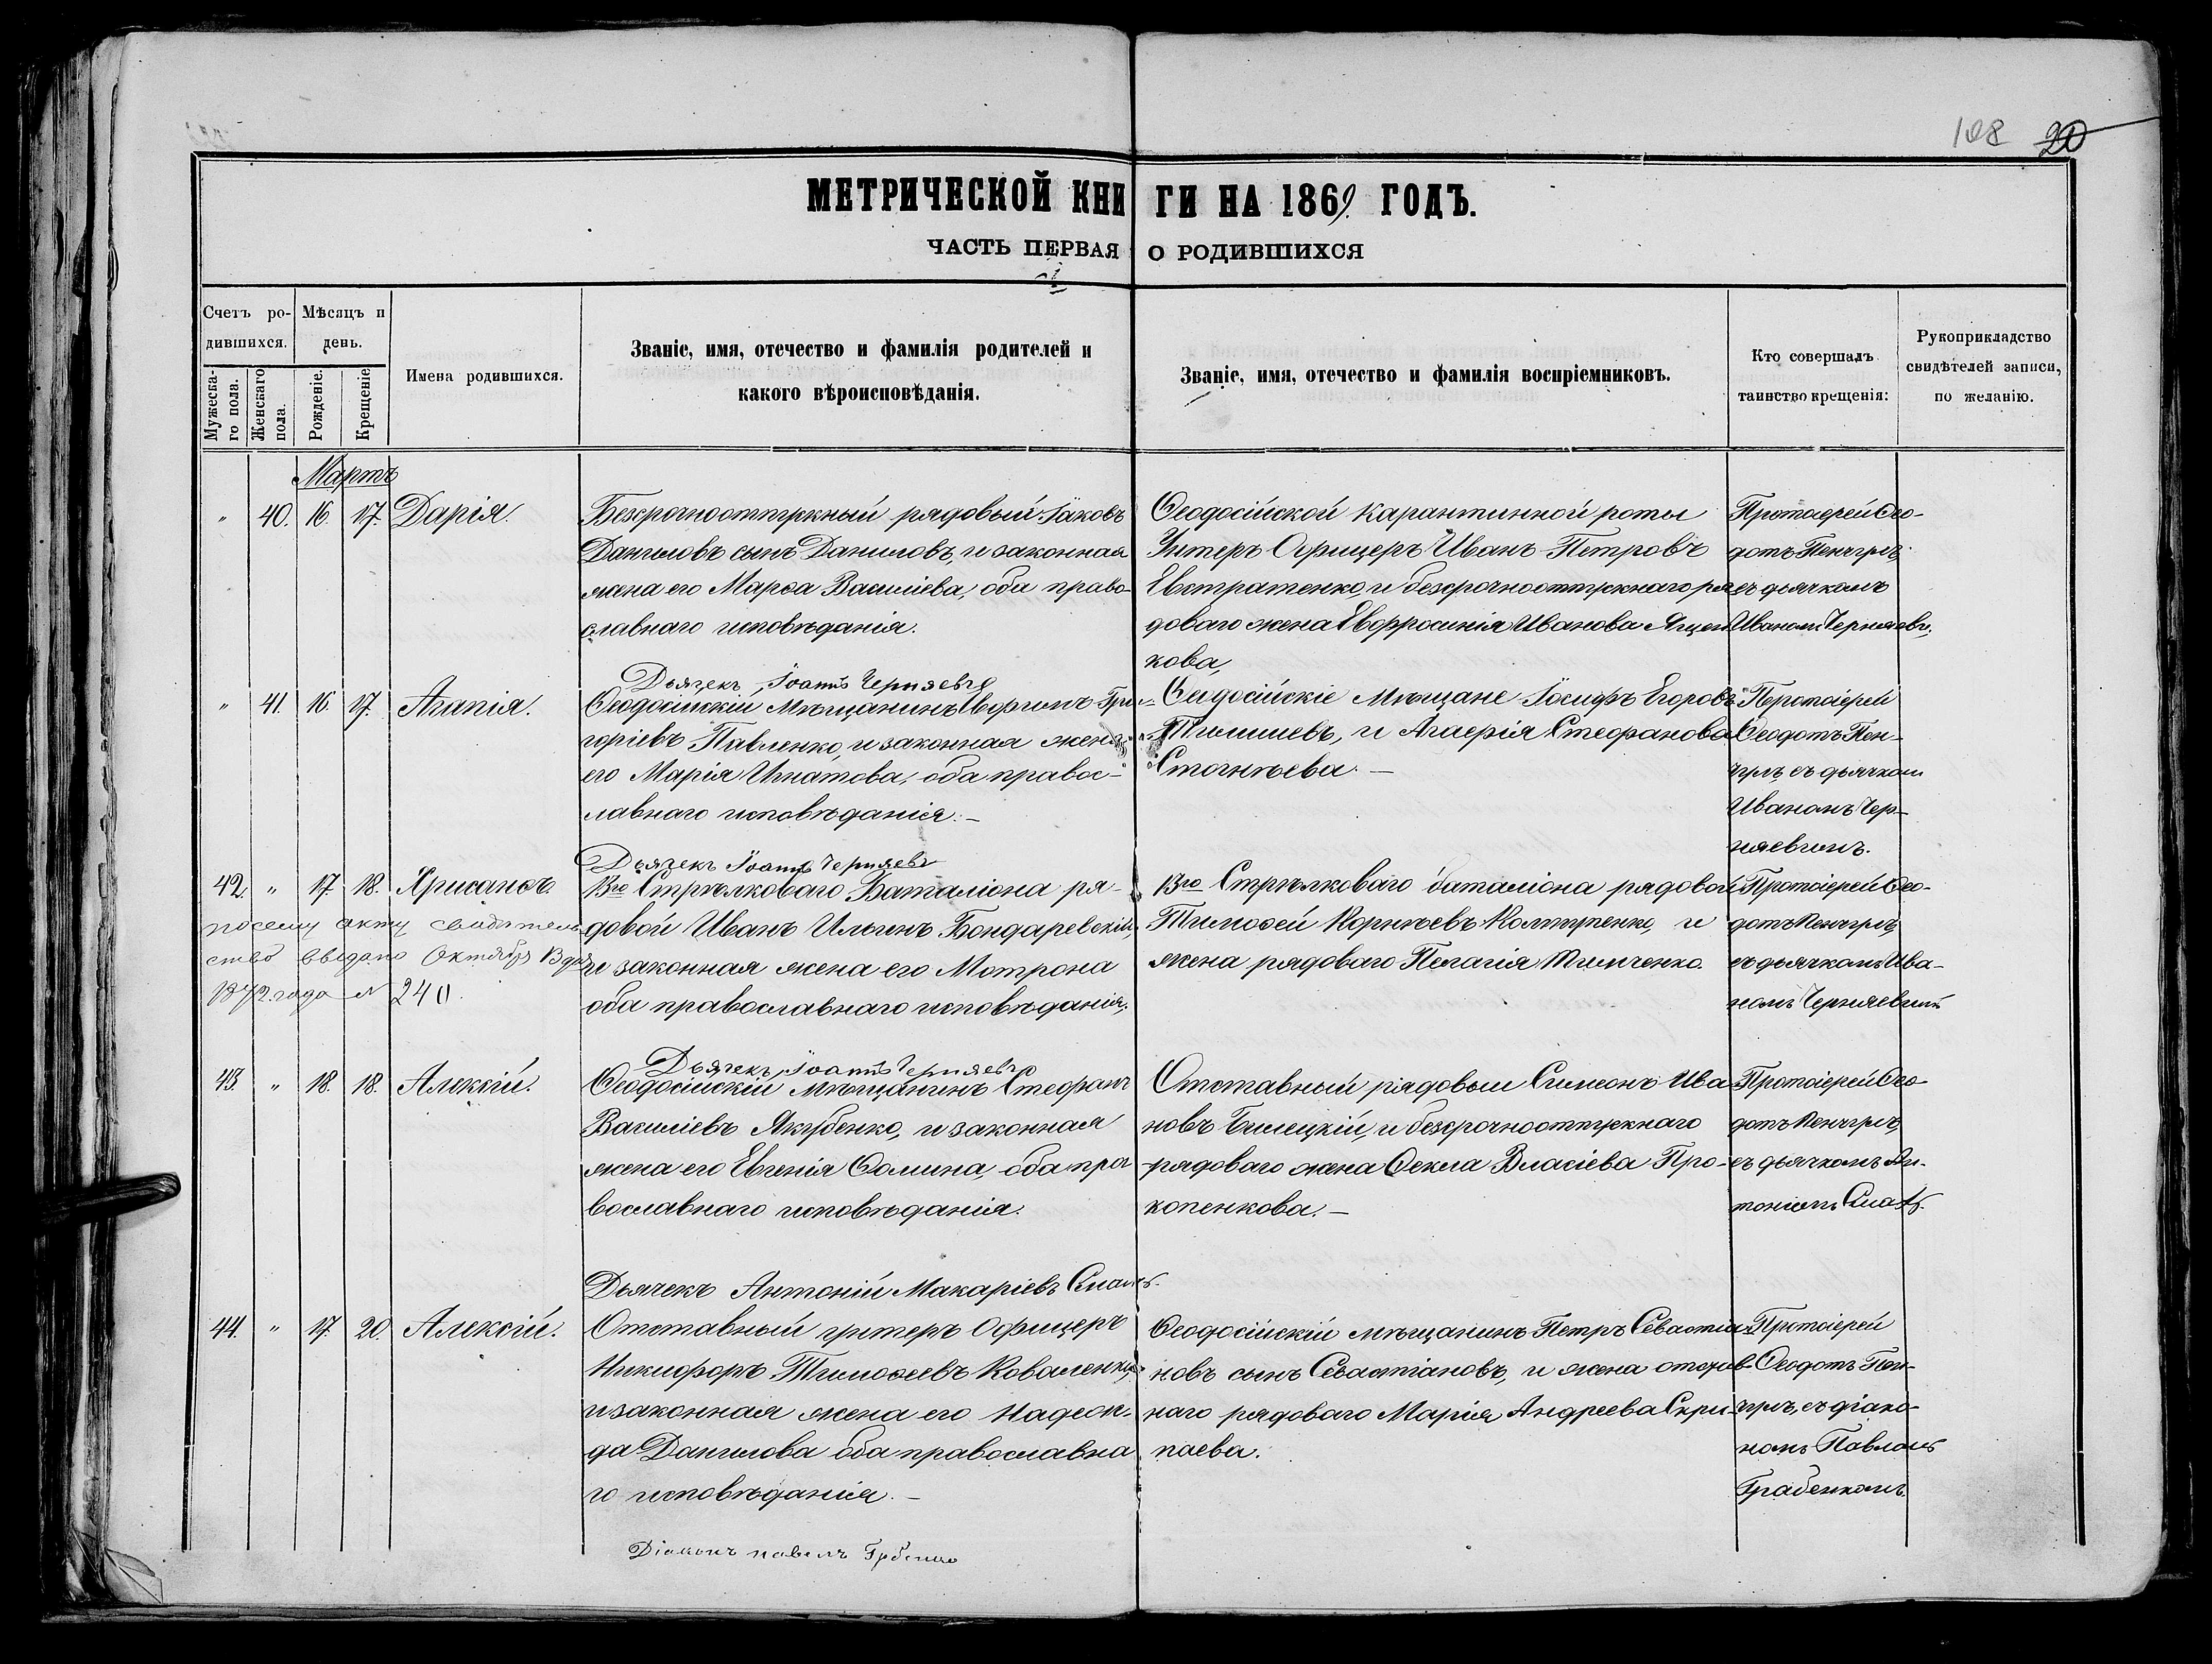 108 20
МЕТРИЧЕСКОЙ КНИГИ НА 1869. ГОДЪ.
ЧАСТЬ ПЕРВАЯ О РОДИВШИХСЯ
Счетъ ро-
дившихся.
Мужеска-
го пола.
Женскаго
пола.
Мѣсяцъ и
день.
Рожденіе.
Крещеніе
Имена родившихся.
Званіе, имя, отечество и фамилія родителей и
какого вѣроисповѣданія.
Званіе, имя, отечество и фамилія воспріемниковъ.
Кто совершалъ
таинство крещенія:
Рукоприкладство
свидѣтелей записи,
по желанію.
Мартъ
" 40. 16. 17. Дарія.
Безсрочноотпускный рядовый Іаковъ
Даниловъ сынъ Даниловъ, и законная
жена его Марѳа Василіева, оба право-
славнаго исповѣданія.
Ѳеодосійской карантинной роты
Унтеръ Офицеръ Иванъ Петровъ
Евстратенко, и безсрочноотпускнаго ря
доваго жена Евфросинія Иванова Яцен
кова,
Протоіерей Ѳео-
дотъ Пенчулъ,
съ дьячкомъ
Иваном Черняевы.
Дьячекъ Іоаннъ Черняевъ
" 41. 16. 17. Агапія.
Ѳеодосійскій Мѣщанинъ Евфимъ Гри-
горіевъ Павленко, и законная жена
его Марія Игнатова, оба правос-
лавнаго исповѣданія. —
Ѳеодосійскіе Мѣщане Іосифъ Егоровъ
и Агаѳрія Стефанова
Протоіерей
Ѳеодотъ Пен-
чулъ съ дьячком
Иваномъ Чер-
няевымъ.
Дьячекъ Іоаннъ Черняевъ
42. " 17. 18. Хрисанѳъ.
по сему акту свидѣтель
ство выдано Октября 13 дня
1872. года N 240.
13го Стрѣлковаго Баталіона ря-
довой Иванъ Ильинъ Бондаревскій,
и законная жена его Мотрона
оба православнаго исповѣданія.
13го Стрѣлковаго баталіона рядовой
Тимоѳей Корнѣевъ Колтуненко, и
жена рядоваго Пелагія Тимченко.
Протоіерей Ѳео-
дотъ Пенчулъ,
съ дьячкомъ Ива-
номъ Черняевымъ
Дьячекъ Іоаннъ Черняевъ
43. " 18. 18. Алексій.
Ѳеодосійскій Мѣщанинъ Стефанъ
Василіевъ Якубенко, и законная
жена его Евгенія Ѳомина, оба пра
вославнаго исповѣданія.
Отставный рядовый Симеонъ Ива
новъ Билецкій, и безсрочноотпускнаго
рядоваго жена Ѳекла Власіева Про-
копенкова. —
Протоіерей Ѳео-
дотъ Пенчулъ,
съ дьячкомъ Ан-
тоніемъ
Дьячекъ Антоній Макаріевъ
44. " 17. 20. Алексій.
Отставный унтеръ Офицеръ
Никифоръ Тимоѳеевъ Коваленко,
и законная жена его Надеж-
да Данилова оба православна
го исповѣданія. —
Ѳеодосійскій мѣщанинъ Петръ Севастиа
новъ сынъ Севастіановъ, и жена отстав
наго рядоваго Марія Андреева Скри
паева.
Протоіерей
Ѳеодотъ Пен-
чулъ, съ діако-
номъ Павломъ
Грабенкомъ.
Діаконъ павелъ